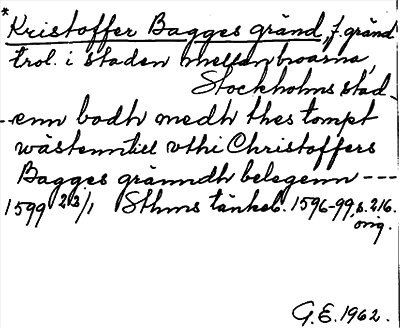 *Kristoffer Bagges gränd, f. gränd
trol. i staden mellan broarna,
Stockholms stad.
--enn bodh medh thes tompt
wästenntill vthi Christoffers
Bagges gränndh belegenn ---
1599 23/1 Sthms tänkeb. 1596-99, s. 216.
orig.
G. E. 1962.